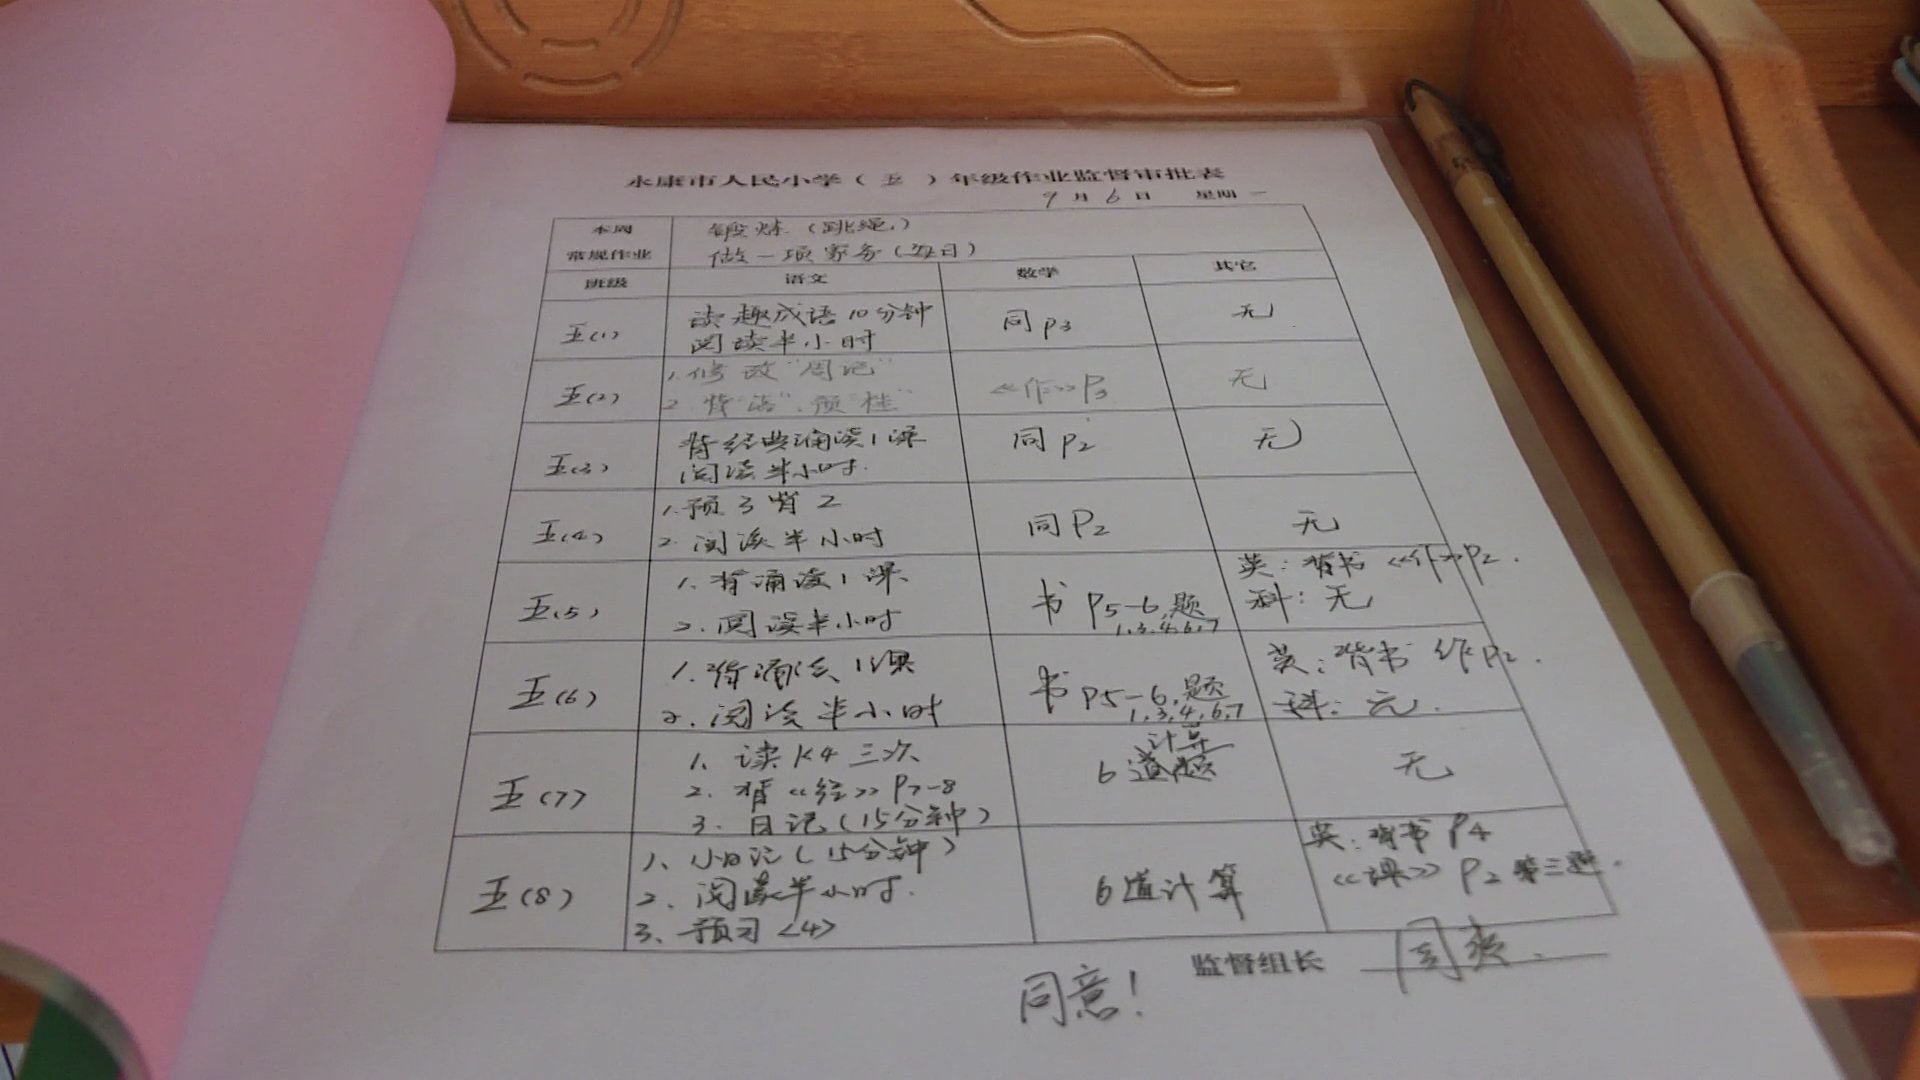 永康市人民小学(五)年级作业监督审批表
9月6日 星期一
本周
常规作业
锻炼(跳绳)
做一项家务(每日)
班级 语文 数学 其它
五(1)
读趣成语10分钟
阅读半小时
同P3
无
五(2)
1.修改"周记"
2.背"语",预"桂"
《作》P3
无
五(3)
背经典诵读1课
阅读半小时.
同P2
无
五(4)
1.预3背2
2.阅读半小时
同P2
无
五(5)
1.背诵读1课
2.阅读半小时
书P5-6,题
1,3,4,6,7
英:背书《作》P2.
科:无
五(6)
1.背诵读1课
2.阅读半小时
书P5-6,题
1,3,4,6,7
英:背书 作P2.
科:无.
五(7)
1、读K4三次
2.背《经》P7-8
3.日记(15分钟)
计算
6道题
无
五(8)
1、小日记(15分钟)
2、阅读半小时.
3、预习<4>
6道计算
英:背书P4
《课》P2 第三题.
监督组长
同意!